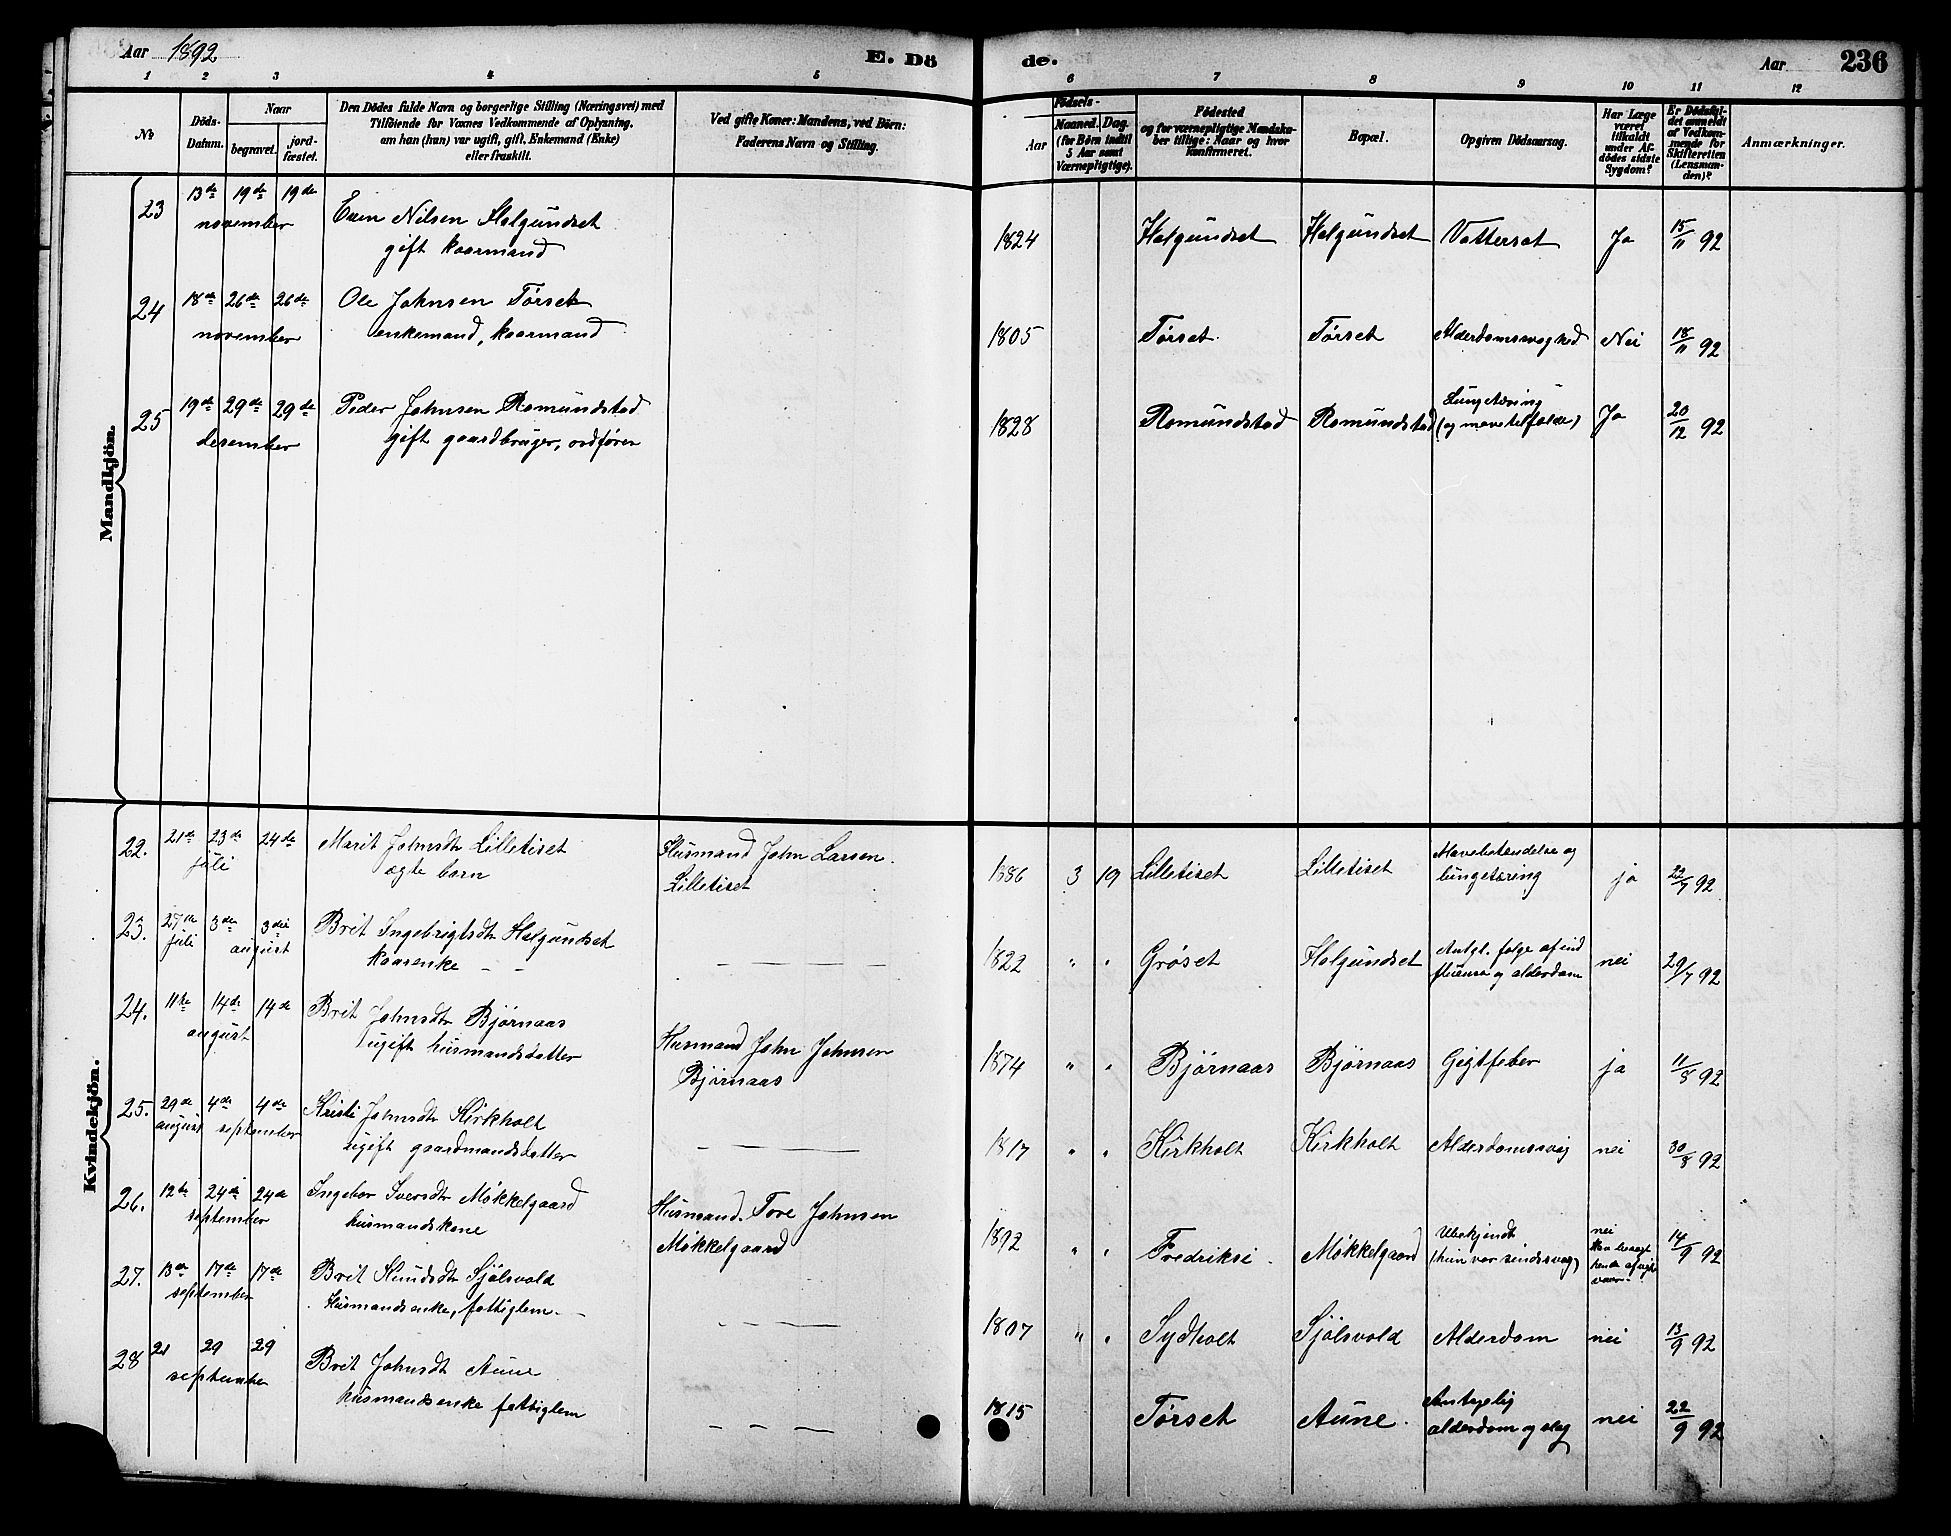 Aar 1892
E. Dö
de.
Aar
236
1 2 3 4 5
6 7 8 9 10 11 12
No
Döds-
Datum.
Naar
begravet.
jord-
fæstet.
Den Dödes fulde Navn og borgerlige Stilling (Næringsvei) med
Tilföiende for Vaxnes Vedkommende af Oplysning,
om han (hun) var ugift, gift, Enkemand (Enke)
eller fraskilt.
Ved gifte Koner: Mandens, ved Börn:
Faderens Navn og Stilling.
Födsels-
Aar
Maaned. Dag.
(for Börn indtil
5 Aar samt
Værnepligtige).
Födested
og for værnepligtige Mandska-
ber tillige: Naar og hvor
konfirmeret.
Bopæl.
Opgiven Dödsaarsag.
Har Læge
været
tilkaldt
under Af-
dödes sidste
Sygdom?
Er Dödsfal-
det anmeldt
af Vedkom-
mende for
Skifteretten
(Lensman-
den)?
Anmærkninger.
Mandkjön.
23 13de 19de 19de
november
Even Nilsen Holgundset
gift kaarmand
1824 Holgundset Holgundset Vattersot Ja 15/11 92
24 18de 26de 26de
november
Ole Johnsen Tørset
enkemand, kaarmand
1805 Tørset Tørset Alderdomssvaghed Nei 18/11 92
25 19de 29de 29de
desember
Peder Johnsen Romundstad
gift gaardbruger, ordfører
1828 Romundstad Romundstad Lungetæring
Ja 20/12 92
Kvindekjön.
22. 21de 23de 24de
juli
Marit Johnsdtr Lilletiset
ægte barn
Husmand John Larsen
Lilletiset
1886 3 19 Lilletiset Lilletiset Mavebetændelse og
lungetæring
ja 22/7 92
23. 27de 3die 3die
juli august
Brit Ingebrigtsdtr Holgundset
kaarenke
1822 " " Grøset Holgundset Antgl. følge af ind
fluensa og alderdom
nei 29/7 92
24. 11te 14de 14de
august
Brit Johnsdtr Bjørnaas
ugift husmandsdatter
Husmand John Johnsen
Bjørnaas
1874 " " Bjørnaas Bjørnaas Gigtfeber ja 11/8 92
25. 29de 4de 4de
august september
Kristi Johnsdtr Kirkholt
ugift gaardmandsdatter
1817 " " Kirkholt Kirkholt Alderdomssvag nei 30/8 92
26. 12te 24de 24de
september
Ingebor Iversdtr Møkkelgaard
husmandskone
Husmand Tore Johnsen
Møkkelgaard
1892 " " Fredriksi Møkkelgaard Ubekjendt
(hun var sindssvag)
nei
14/9 92
27. 13de 17de 17de
september
Brit Knudsdtr Sjølsvold
Husmandsenke, fattiglem
1807 " " Sydholt Sjølsvold Alderdom nei 13/9 92
28 21 29 29
september
Brit Johnsdtr Aune
husmandsenke fattiglem
1815 Tørset Aune. Antagelig
alderdom og slag
nei 22/9 92